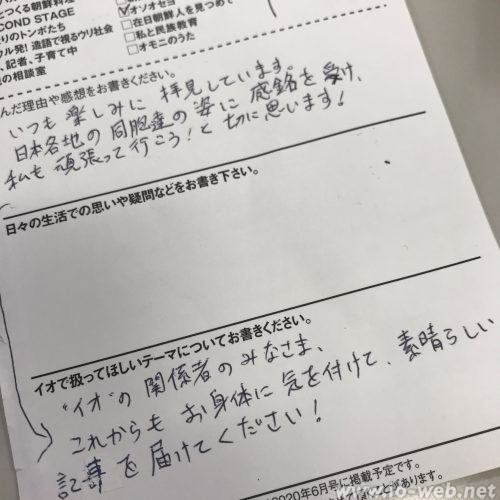 とつくる朝鮮料理
COND STAGE
りのトンボたち
ウル発! 造語で視るウリ社会
、記者、子育て中
の相談室
オソオセヨ
在日朝鮮人を見つめて
私と民族教育
オモニのうた
んだ理由や感想をお書きください。
いつも楽しみに拝見しています。
日本各地の同胞達の姿に感銘を受け、
私も頑張って行こう!と切に思います!
日々の生活での思いや疑問などをお書き下さい。
イオで扱ってほしいテーマについてお書きください。
"イオ"の関係者のみなさま、
これからもお身体に気を付けて、素晴らしい
記事を届けてください!
2020年6月号に掲載予定です。
ことがあります。
io-web.net